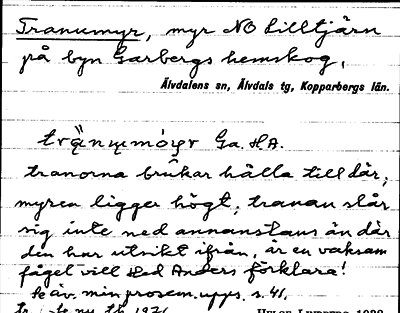 Tranumyr, myr NO Lilltjärn
på byn Garbergs hemskog,
Älvdalens sn, Älvdals tg, Kopparbergs län.
Ga. HA.
tranorna brukar hålla till där;
myren ligger högt; tranan slår
sig inte ned annanstans än där
den har utsikt ifrån, är en vaksam
fågel vill Hed Anders förklara!
Se äv. min prosem.upps. s. 41.